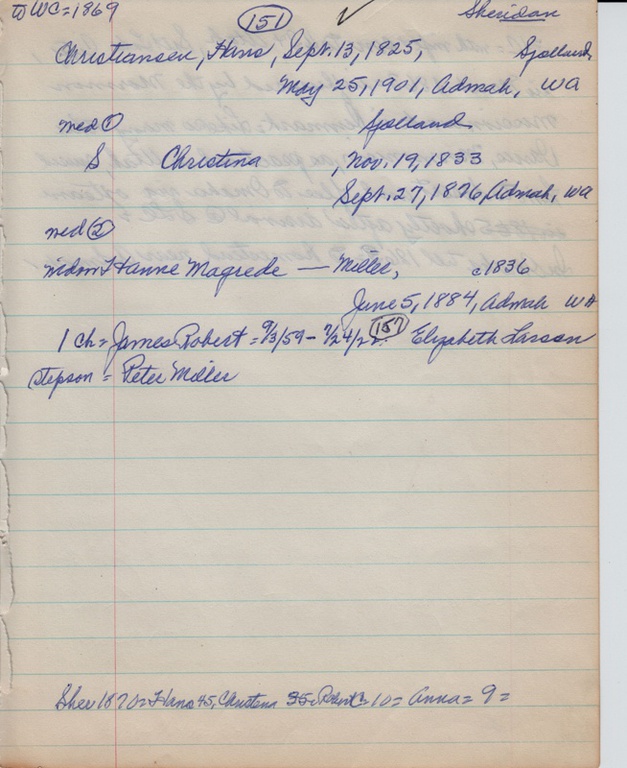 to WC=1869 (151) ✓ Sheridan
Christiansen, Hans, Sept. 13, 1825, Sjolland
May 25, 1901, Admah, WA
med ① Sjolland
S Christina , Nov. 19, 1833
Sept. 27, 1876, Admah, WA
med ②
widow Hanne Magrede — Miller, c1836
June 5, 1884, Admah WA
1 ch = James Robert = 9/3/59 - 7/24/2 (157) Elizabeth Larson
stepson = Peter Miller
Sher 1870 = Hans 45, Christena 35 = 10 = Anna = 9 =